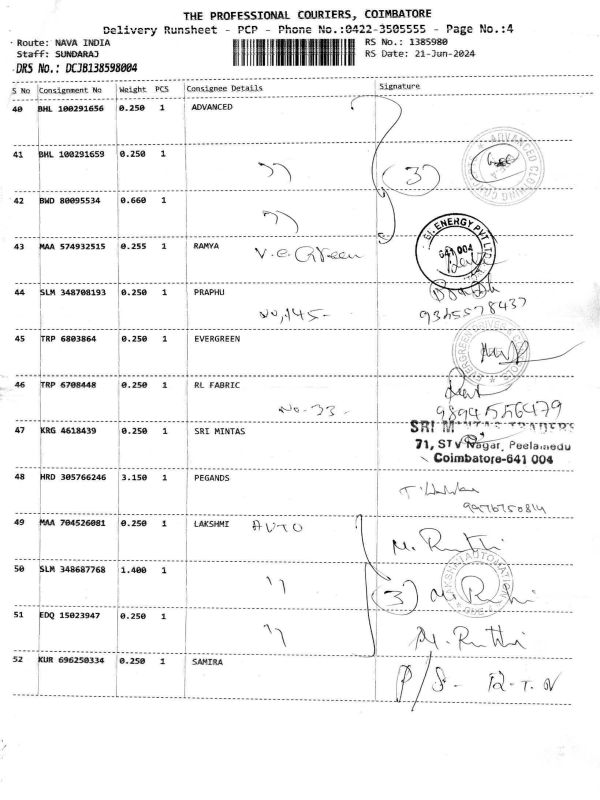 THE PROFESSIONAL COURIERS, COIMBATORE
Delivery Runsheet - PCP - Phone No.:0422-3505555 - Page No.:4
Route: NAVA INDIA RS No.: 1385980
Staff: SUNDARAJ RS Date: 21-Jun-2024
DRS No.: DCJB138598004
S No Consignment No Weight PCS Consignee Details Signature
40 BHL 100291656 0.250 1 ADVANCED
41 BHL 100291659 0.250 1 " (3)
ADVANCED CLOTHING
42 BWD 80095534 0.660 1 "
EI. ENERGY PVT LTD
641 004
43 MAA 574932515 0.255 1 RAMYA V.G. Green
44 SLM 348708193 0.250 1 PRAPHU
No,145- 9365578437
45 TRP 6803864 0.250 1 EVERGREEN
46 TRP 6708448 0.250 1 RL FABRIC
No-33- 9894556479
47 KRG 4618439 0.250 1 SRI MINTAS
SRI MINTAS TRADERS
71, STV Nagar, Peelamedu
Coimbatore-641 004
48 HRD 305766246 3.150 1 PEGANDS
49 MAA 704526081 0.250 1 LAKSHMI AUTO
M. Ruthi
50 SLM 348687768 1.400 1 " (3) M. Ruthi
LAKSHAUTOMATION
51 EDQ 15023947 0.250 1 " M. Ruthi
52 KUR 696250334 0.250 1 SAMIRA
P/S- R-T.N